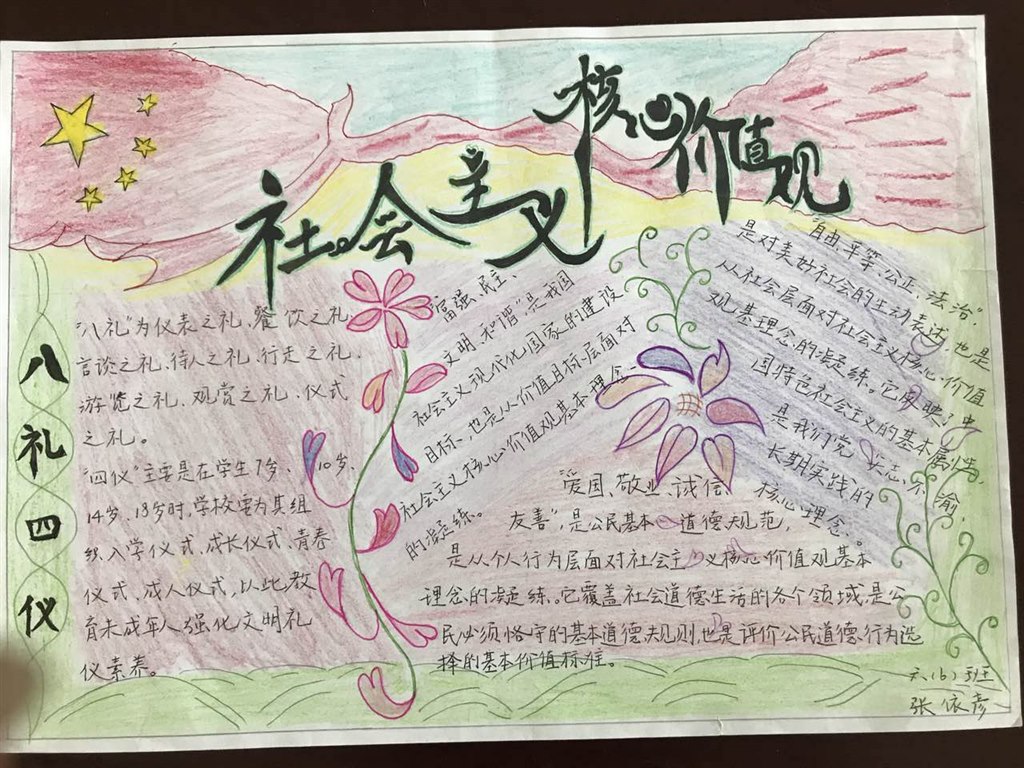 社会主义核心价值观
八礼四仪
"八礼"为仪表之礼、餐饮之礼、
言谈之礼、待人之礼、行走之礼、
游览之礼、观赏之礼、仪式
之礼。
"四仪"主要是在学生7岁、10岁、
14岁、18岁时,学校要为其组
织入学仪式、成长仪式、青春
仪式、成人仪式,以此教
育未成年人强化文明礼
仪素养。
"富强、民主、
文明、和谐",是我国
社会主义现代化国家的建设
目标、也是从价值目标层面对
社会主义核心价值观基本理念
的凝练。
"自由、平等、公正、法治",
是对美好社会的生动表述,也是
从社会层面对社会主义核心价值
观基理念的凝练。它反映了中
国特色社会主义的基本属性,
是我们党矢志不渝,
长期实践的
核心理念。
"爱国、敬业、诚信、
友善",是公民基本道德规范,
是从个人行为层面对社会主义核心价值观基本
理念的凝练。它覆盖社会道德生活的各个领域,是公
民必须恪守的基本道德规则,也是评价公民道德行为选
择的基本价值标准。
六(6)班
张依彦